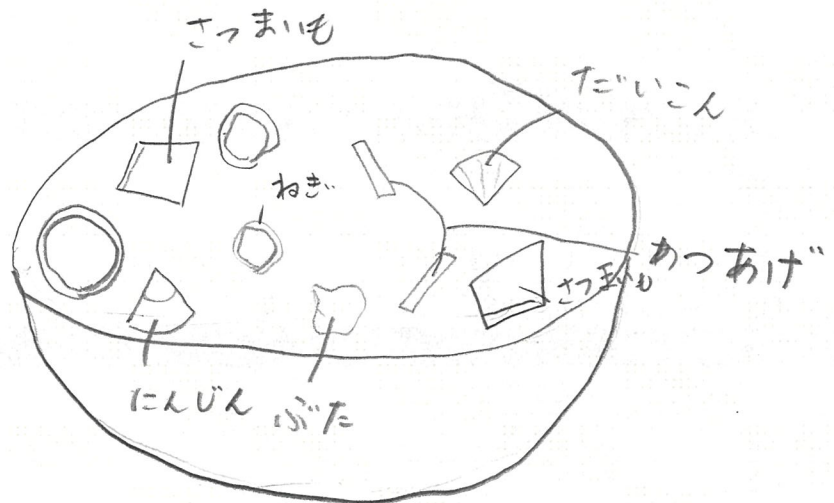 さつまいも
だいこん
ねぎ
あつあげ
さつまいも
にんじん
ぶた